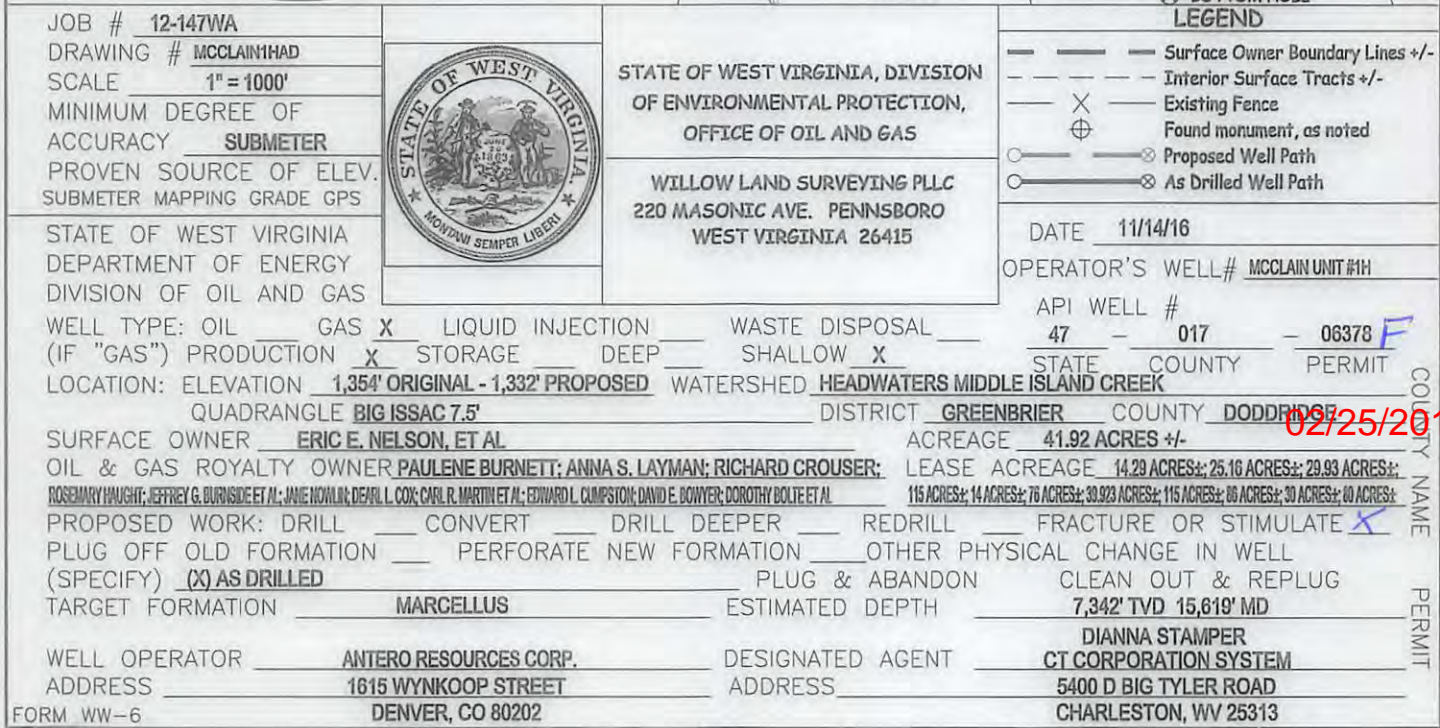 JOB # 12-147WA
DRAWING # MCCLAIN1HAD
SCALE 1" = 1000'
MINIMUM DEGREE OF
ACCURACY SUBMETER
PROVEN SOURCE OF ELEV.
SUBMETER MAPPING GRADE GPS
STATE OF WEST VIRGINIA
DEPARTMENT OF ENERGY
DIVISION OF OIL AND GAS
STATE OF WEST VIRGINIA
MONTANI SEMPER LIBERI
STATE OF WEST VIRGINIA, DIVISION
OF ENVIRONMENTAL PROTECTION,
OFFICE OF OIL AND GAS
WILLOW LAND SURVEYING PLLC
220 MASONIC AVE. PENNSBORO
WEST VIRGINIA 26415
LEGEND
Surface Owner Boundary Lines +/-
Interior Surface Tracts +/-
Existing Fence
Found monument, as noted
Proposed Well Path
As Drilled Well Path
DATE 11/14/16
OPERATOR'S WELL# MCCLAIN UNIT #1H
API WELL #
47 - 017 - 06378 F
STATE COUNTY PERMIT
WELL TYPE: OIL GAS X LIQUID INJECTION WASTE DISPOSAL
(IF "GAS") PRODUCTION X STORAGE DEEP SHALLOW X
LOCATION: ELEVATION 1,354' ORIGINAL - 1,332' PROPOSED WATERSHED HEADWATERS MIDDLE ISLAND CREEK
QUADRANGLE BIG ISSAC 7.5' DISTRICT GREENBRIER COUNTY DODDRIDGE
02/25/201
SURFACE OWNER ERIC E. NELSON, ET AL ACREAGE 41.92 ACRES +/-
OIL & GAS ROYALTY OWNER PAULENE BURNETT; ANNA S. LAYMAN; RICHARD CROUSER; LEASE ACREAGE 14.29 ACRES±; 25.16 ACRES±; 29.93 ACRES±;
ROSEMARY HAUGHT; JEFFREY G. BURNSIDE ET AL; JANE NOWLIN; DEARL L. COX; CARL R. MARTIN ET AL; EDWARD L. CUMPSTON; DAVID E. BOWYER; DOROTHY BOLTE ET AL 115 ACRES±; 14 ACRES±; 76 ACRES±; 39.923 ACRES±; 115 ACRES±; 86 ACRES±; 30 ACRES±; 80 ACRES±
PROPOSED WORK: DRILL CONVERT DRILL DEEPER REDRILL FRACTURE OR STIMULATE X
PLUG OFF OLD FORMATION PERFORATE NEW FORMATION OTHER PHYSICAL CHANGE IN WELL
(SPECIFY) (X) AS DRILLED PLUG & ABANDON CLEAN OUT & REPLUG
TARGET FORMATION MARCELLUS ESTIMATED DEPTH 7,342' TVD 15,619' MD
WELL OPERATOR ANTERO RESOURCES CORP. DESIGNATED AGENT DIANNA STAMPER
CT CORPORATION SYSTEM
ADDRESS 1615 WYNKOOP STREET ADDRESS 5400 D BIG TYLER ROAD
FORM WW-6 DENVER, CO 80202 CHARLESTON, WV 25313
COUNTY NAME
PERMIT